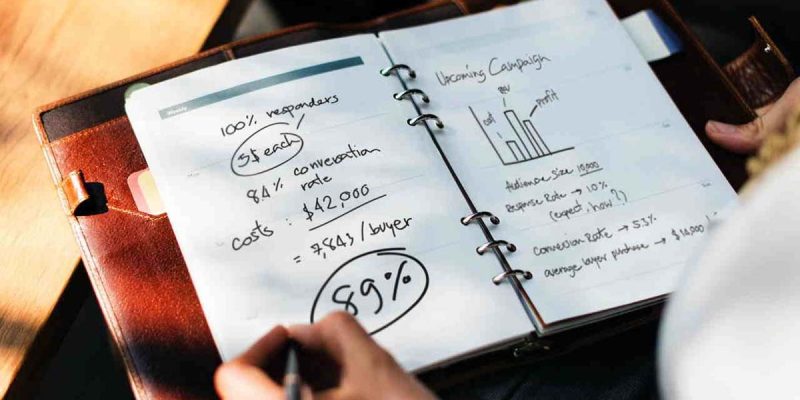 Weekly
100% responders
3$ each
84% conversation
rate
costs : $42,000
= 7,843 / buyer
89%
Upcoming Campaign
cost
Profit
Audience Size 10,000
Response Rate → 10%
(expect, how?)
Conversion Rate → 5.3%
average buyer purchase → $14,000